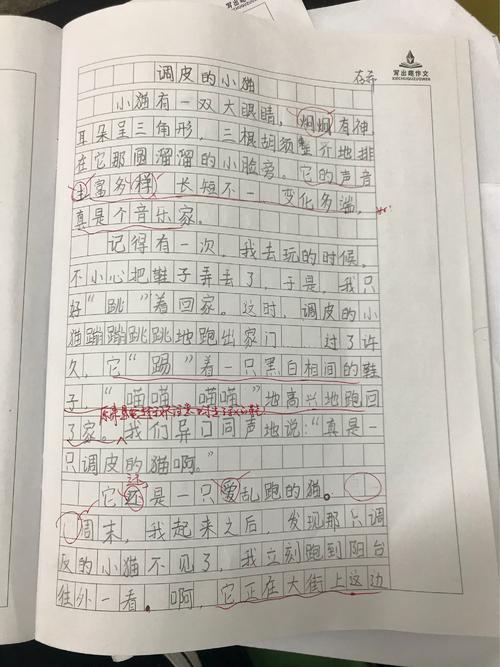 写出题作文
调皮的小猫
小猫有一双大眼睛，炯炯有神，
耳朵呈三角形，三根胡须整齐地排
在它那圆溜溜的小脸旁。它的声音
丰富多样 长短不一 变化多端，
真是个音乐家。
记得有一次，我去玩的时候，
不小心把鞋子弄丢了，于是，我只
好“跳”着回家。这时，调皮的小
猫蹦蹦跳跳地跑出家门 过了许
久，它“踢”着一只黑白相间的鞋
子“喵喵 喵喵”地高兴地跑回
了家。我们异口同声地说：“真是一
只调皮的猫啊。”
它还是一只爱乱跑的猫。
周末，我起来之后，发现那只调
皮的小猫不见了，我立刻跑到阳台
往外一看。啊，它正在大街上这边